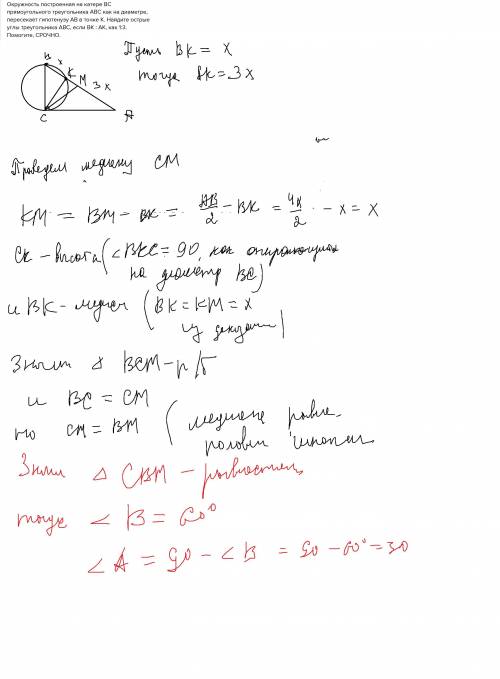 Окружность построенная на катере BC
прямоугольного треугольника ABC как на диаметре,
пересекает гипотенузу AB в точке K. Найдите острые
углы треугольника ABC, если BK : AK, как 1:3.
Помогите, СРОЧНО.
Пусть BK = x
тогда AK = 3x
B x K M 3x
C A
Проведем медиану CM
KM = BM - BK = AB/2 - BK = 4x/2 - x = x
CK - высота (∠BKC = 90, как опирающийся
на диаметр BC)
и BK - медиан (BK = KM = x
из доказан)
Значит △ BCM - р/б
и BC = CM
но CM = BM (медиана равна
половин гипотен
Значи △ CBM - равностен
тогда ∠ B = 60°
∠ A = 90 - ∠ B = 90 - 60° = 30